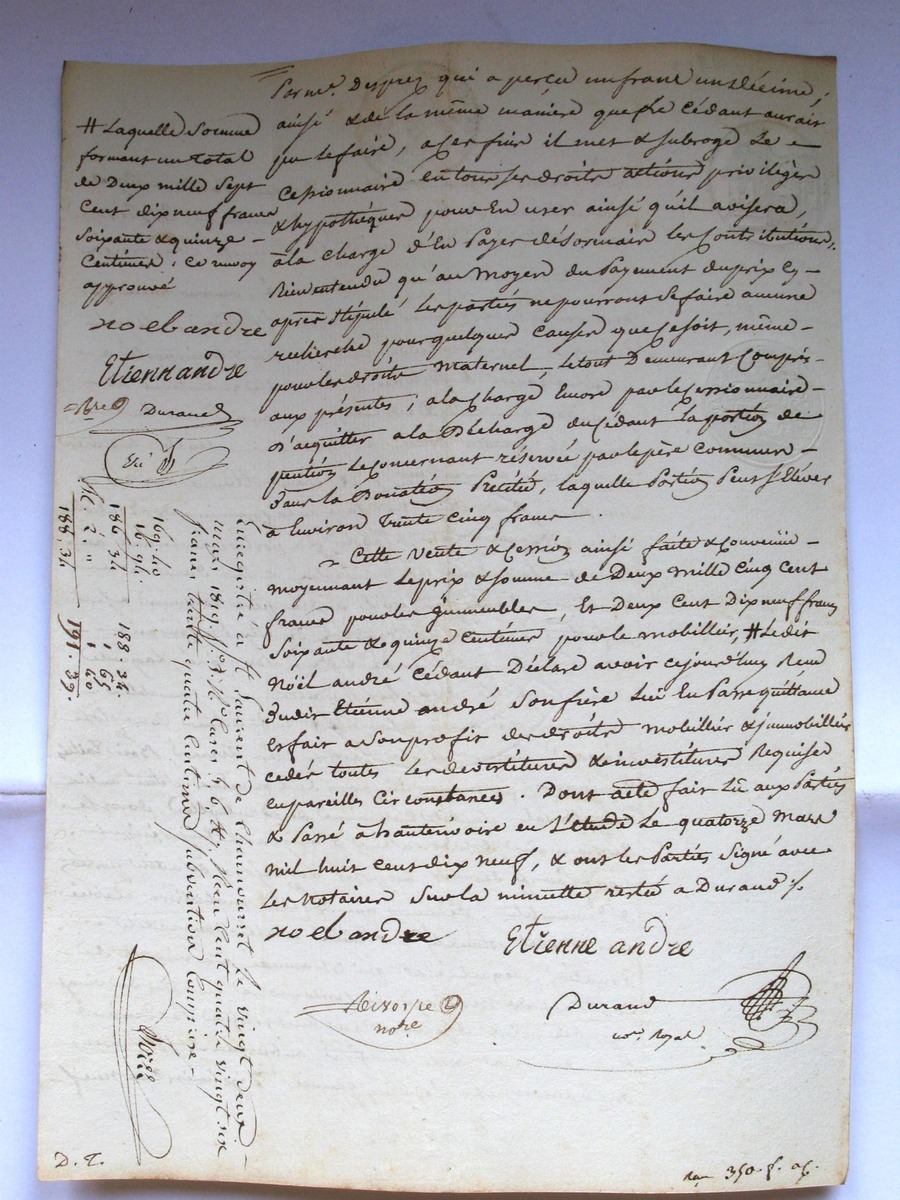 Par me. Desprez qui a perçu un franc un décime;
ainsi & de la même manière que le cédant aurait
pu le faire, a ces fins il met & subroge le
Cessionnaire en tous ses droits actions privilèges
& hypothéques pour En user ainsi qu'il avisera,
à la charge d'En Payer désormais les Contributions,
Bien entendu qu'au Moyen du Payement du prix Cy-
après stipulé les parties ne pourront se faire aucune
recherche pour quelque Causes que Ce soit, même
pour les droits Maternel, le tout Demeurant Compris
aux présentes; a la Charge Encore par le Cessionnaire
D'acquitter a la Décharge du Cédant la portion de
pention le Concernant réservée par le père commun
Dans la Donation Précitée, laquelle Portion Peut s'Elever
à Environ Trente Cinq francs.
Cette Vente & Cession ainsi faite & Convenue
moyennant le prix & somme de Deux Mille Cinq Cent
francs pour les immeubles, Et Deux Cent Dix neuf francs
Soixante & quinze Centimes pour le mobilier, # le dit
Noël andré Cédant Déclare avoir cejourd'huy Reçu
Dudit Etienne andré son frère lui En Passe quittance
Et fait a Son profit des droits mobiliers & immobiliers
cedés toutes les devestitures & investitures Requises
en pareilles Circonstances. Dont acte fait Lû aux Parties
& Passé à hauterivoire en L'étude Le quatorze Mars
Mil huit cent dix neuf, & ont les Parties Signé avec
Les Notaires Sur la minutte restée a Durand ./.
noel andre
Etienne andre
note
Durand
not. Royal
# Laquelle Somme
formant un Total
de Deux mille Sept
Cent dix neuf francs
Soixante & quinze
Centimes; ce renvoy
approuvé
noel andre
Etienn andre
Durand
169.40
16.94
186.34
2."
188.34
188.34
1.65
1.40
191.39.
Enregistré à St Laurent de Chamousset le vingt deux
mars 1819. Reçu Cent quatre vingt six
francs trente quatre Centimes Subvention Comprise
D. T.
350. f.